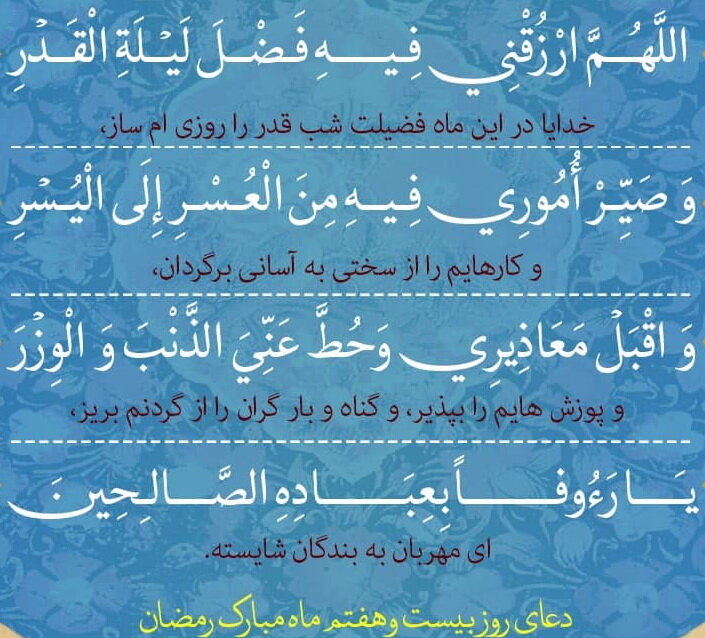 اللَّهُمَّ ارْزُقْنِي فِيهِ فَضْلَ لَيْلَةِ الْقَدْرِ
خدایا در این ماه فضیلت شب قدر را روزی ام ساز،
وَ صَيِّرْ أُمُورِي فِيهِ مِنَ الْعُسْرِ إِلَى الْيُسْرِ
و کارهایم را از سختی به آسانی برگردان،
وَ اقْبَلْ مَعَاذِيرِي وَحُطَّ عَنِّيَ الذَّنْبَ وَ الْوِزْرَ
و پوزش هایم را بپذیر، و گناه و بار گران را از گردنم بریز،
يَا رَءُوفاً بِعِبَادِهِ الصَّالِحِينَ
ای مهربان به بندگان شایسته.
دعای روز بیست و هفتم ماه مبارک رمضان